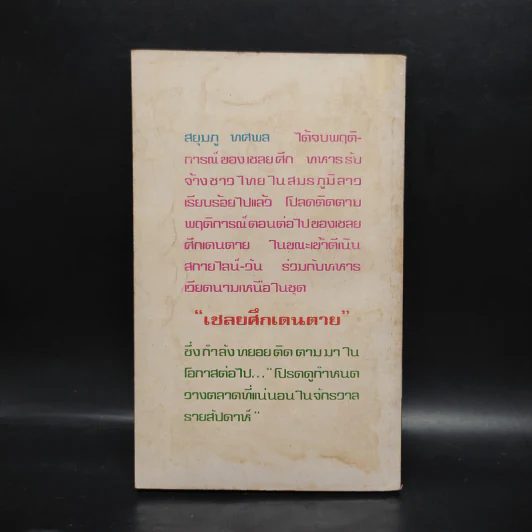 สยุมภู ทศพล ได้จบพฤติ-
การณ์ของเชลยศึก ทหารรับ
จ้างชาวไทยในสมรภูมิลาว
เรียบร้อยไปแล้ว โปลดติดตาม
พฤติการณ์ตอนต่อไปของเชลย
ศึกเดนตาย ในขณะเข้าตีเนิน
สกายไลน์-วัน ร่วมกับทหาร
เวียดนามเหนือในชุด
“เชลยศึกเดนตาย”
ซึ่งกำลังทยอยติดตามมาใน
โอกาสต่อไป...“โปรดดูกำหนด
วางตลาดที่แน่นอนในจักรวาล
รายสัปดาห์”